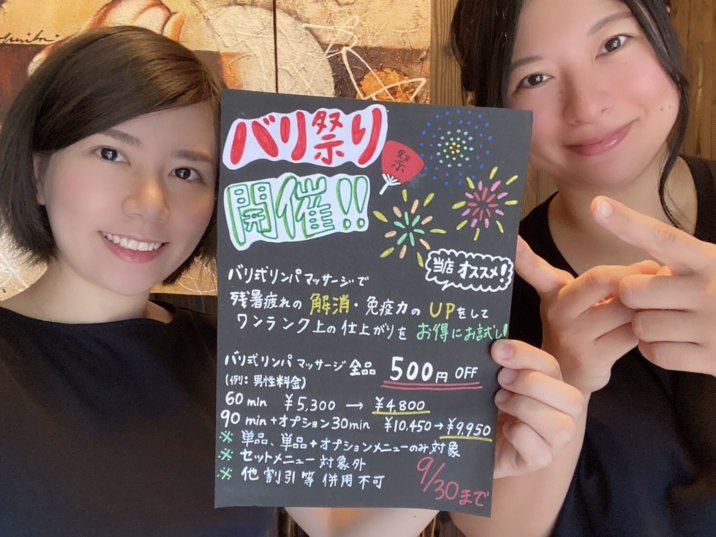 バリ祭り
祭
開催!!
当店オススメ!
バリ式リンパマッサージで
残暑疲れの解消・免疫力のUPをして
ワンランク上の仕上がりをお得にお試し!
バリ式リンパマッサージ全品 500円OFF
(例:男性料金)
60min ¥5,300 → ¥4,800
90min+オプション30min ¥10,450→¥9,950
※ 単品、単品+オプションメニューのみ対象
※ セットメニュー対象外
※ 他割引等併用不可
9/30まで